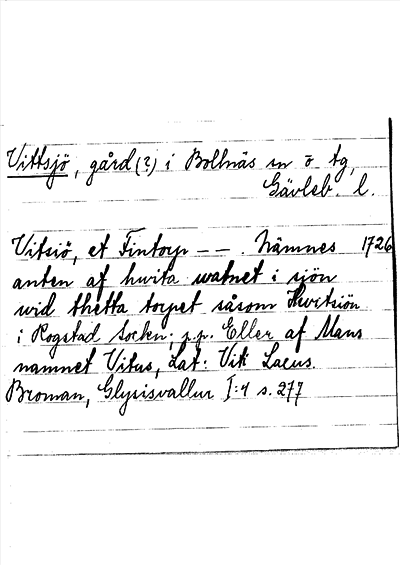 Vittsjö, gård(?) i Bollnäs sn o tg,
Gävleb. l.
Vitsiö, et Fintorp – – . Nämnes 1726
anten af hwita watnet i sjön
wid thetta torpet såsom Hwitsiön
i Rogstad Socken; p.p. Eller af Mans
namnet Vitus, Lat: Viti Lacus.
Broman, Glysisvallur I:4 s. 277